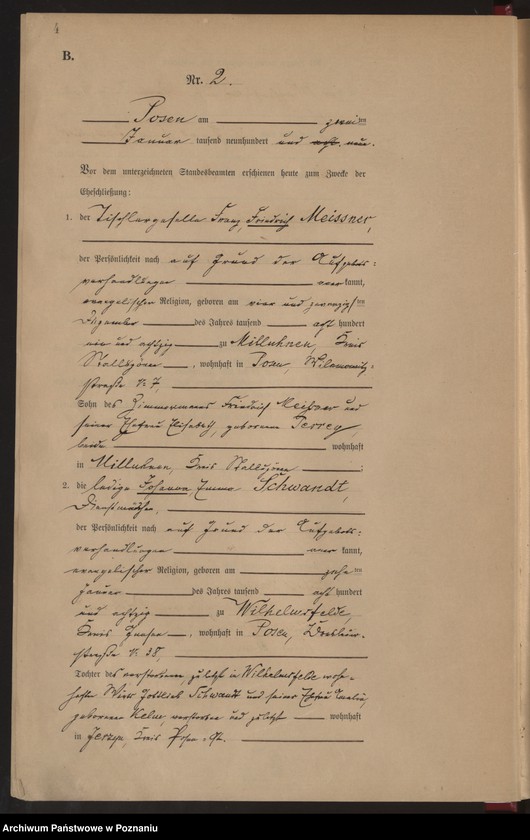 4
B.
Nr. 2.
Posen am zweiten
Januar tausend neunhundert und acht neun.
Vor dem unterzeichneten Standesbeamten erschienen heute zum Zwecke der
Eheschließung:
1. der Tischlergeselle Franz Friedrich Meissner,
der Persönlichkeit nach auf Grund der Aufgebots-
verhandlungen anerkannt,
evangelischer Religion, geboren am vier und zwanzigsten
Dezember des Jahres tausend acht hundert
ein und achtzig zu Milluhnen, Kreis
Stallupönen, wohnhaft in Posen, Wilamowitz-
straße № 7,
Sohn des Zimmermanns Friedrich Meißner und
seiner Ehefrau Elisabeth, geborenen Perrey,
beide wohnhaft
in Milluhnen, Kreis Stallupönen;
2. die ledige Johanna Emma Schwandt,
Dienstmädchen,
der Persönlichkeit nach auf Grund der Aufgebots-
verhandlungen anerkannt,
evangelischer Religion, geboren am
Januar des Jahres tausend acht hundert
und achtzig zu Wilhelmsfelde,
Kreis Gnesen, wohnhaft in Posen,
straße № 38,
Tochter des verstorbenen, zuletzt in Wilhelmsfelde wohn-
haften Wirts Gottlieb Schwandt und seiner Ehefrau
geborenen verstorben und zuletzt wohnhaft
in Kreis Posen Ost.
Archiwum Państwowe w Poznaniu